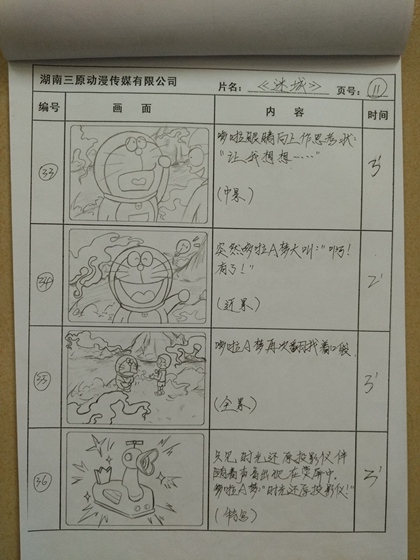 湖南三原动漫传媒有限公司
片名：《迷城》
页号：11
编号 画面 内容 时间
33
哆啦眼睛向上作思考状：
“让我想想……”
(中景)
3'
34
突然哆啦A梦大叫：“啊！
有了！”
(近景)
2'
35
哆啦A梦再次翻找着口袋
(全景)
3'
36
只见时光还原投影仪伴
随着声音出现在荧屏中，
哆啦A梦：“时光还原投影仪！”
(特写)
3'